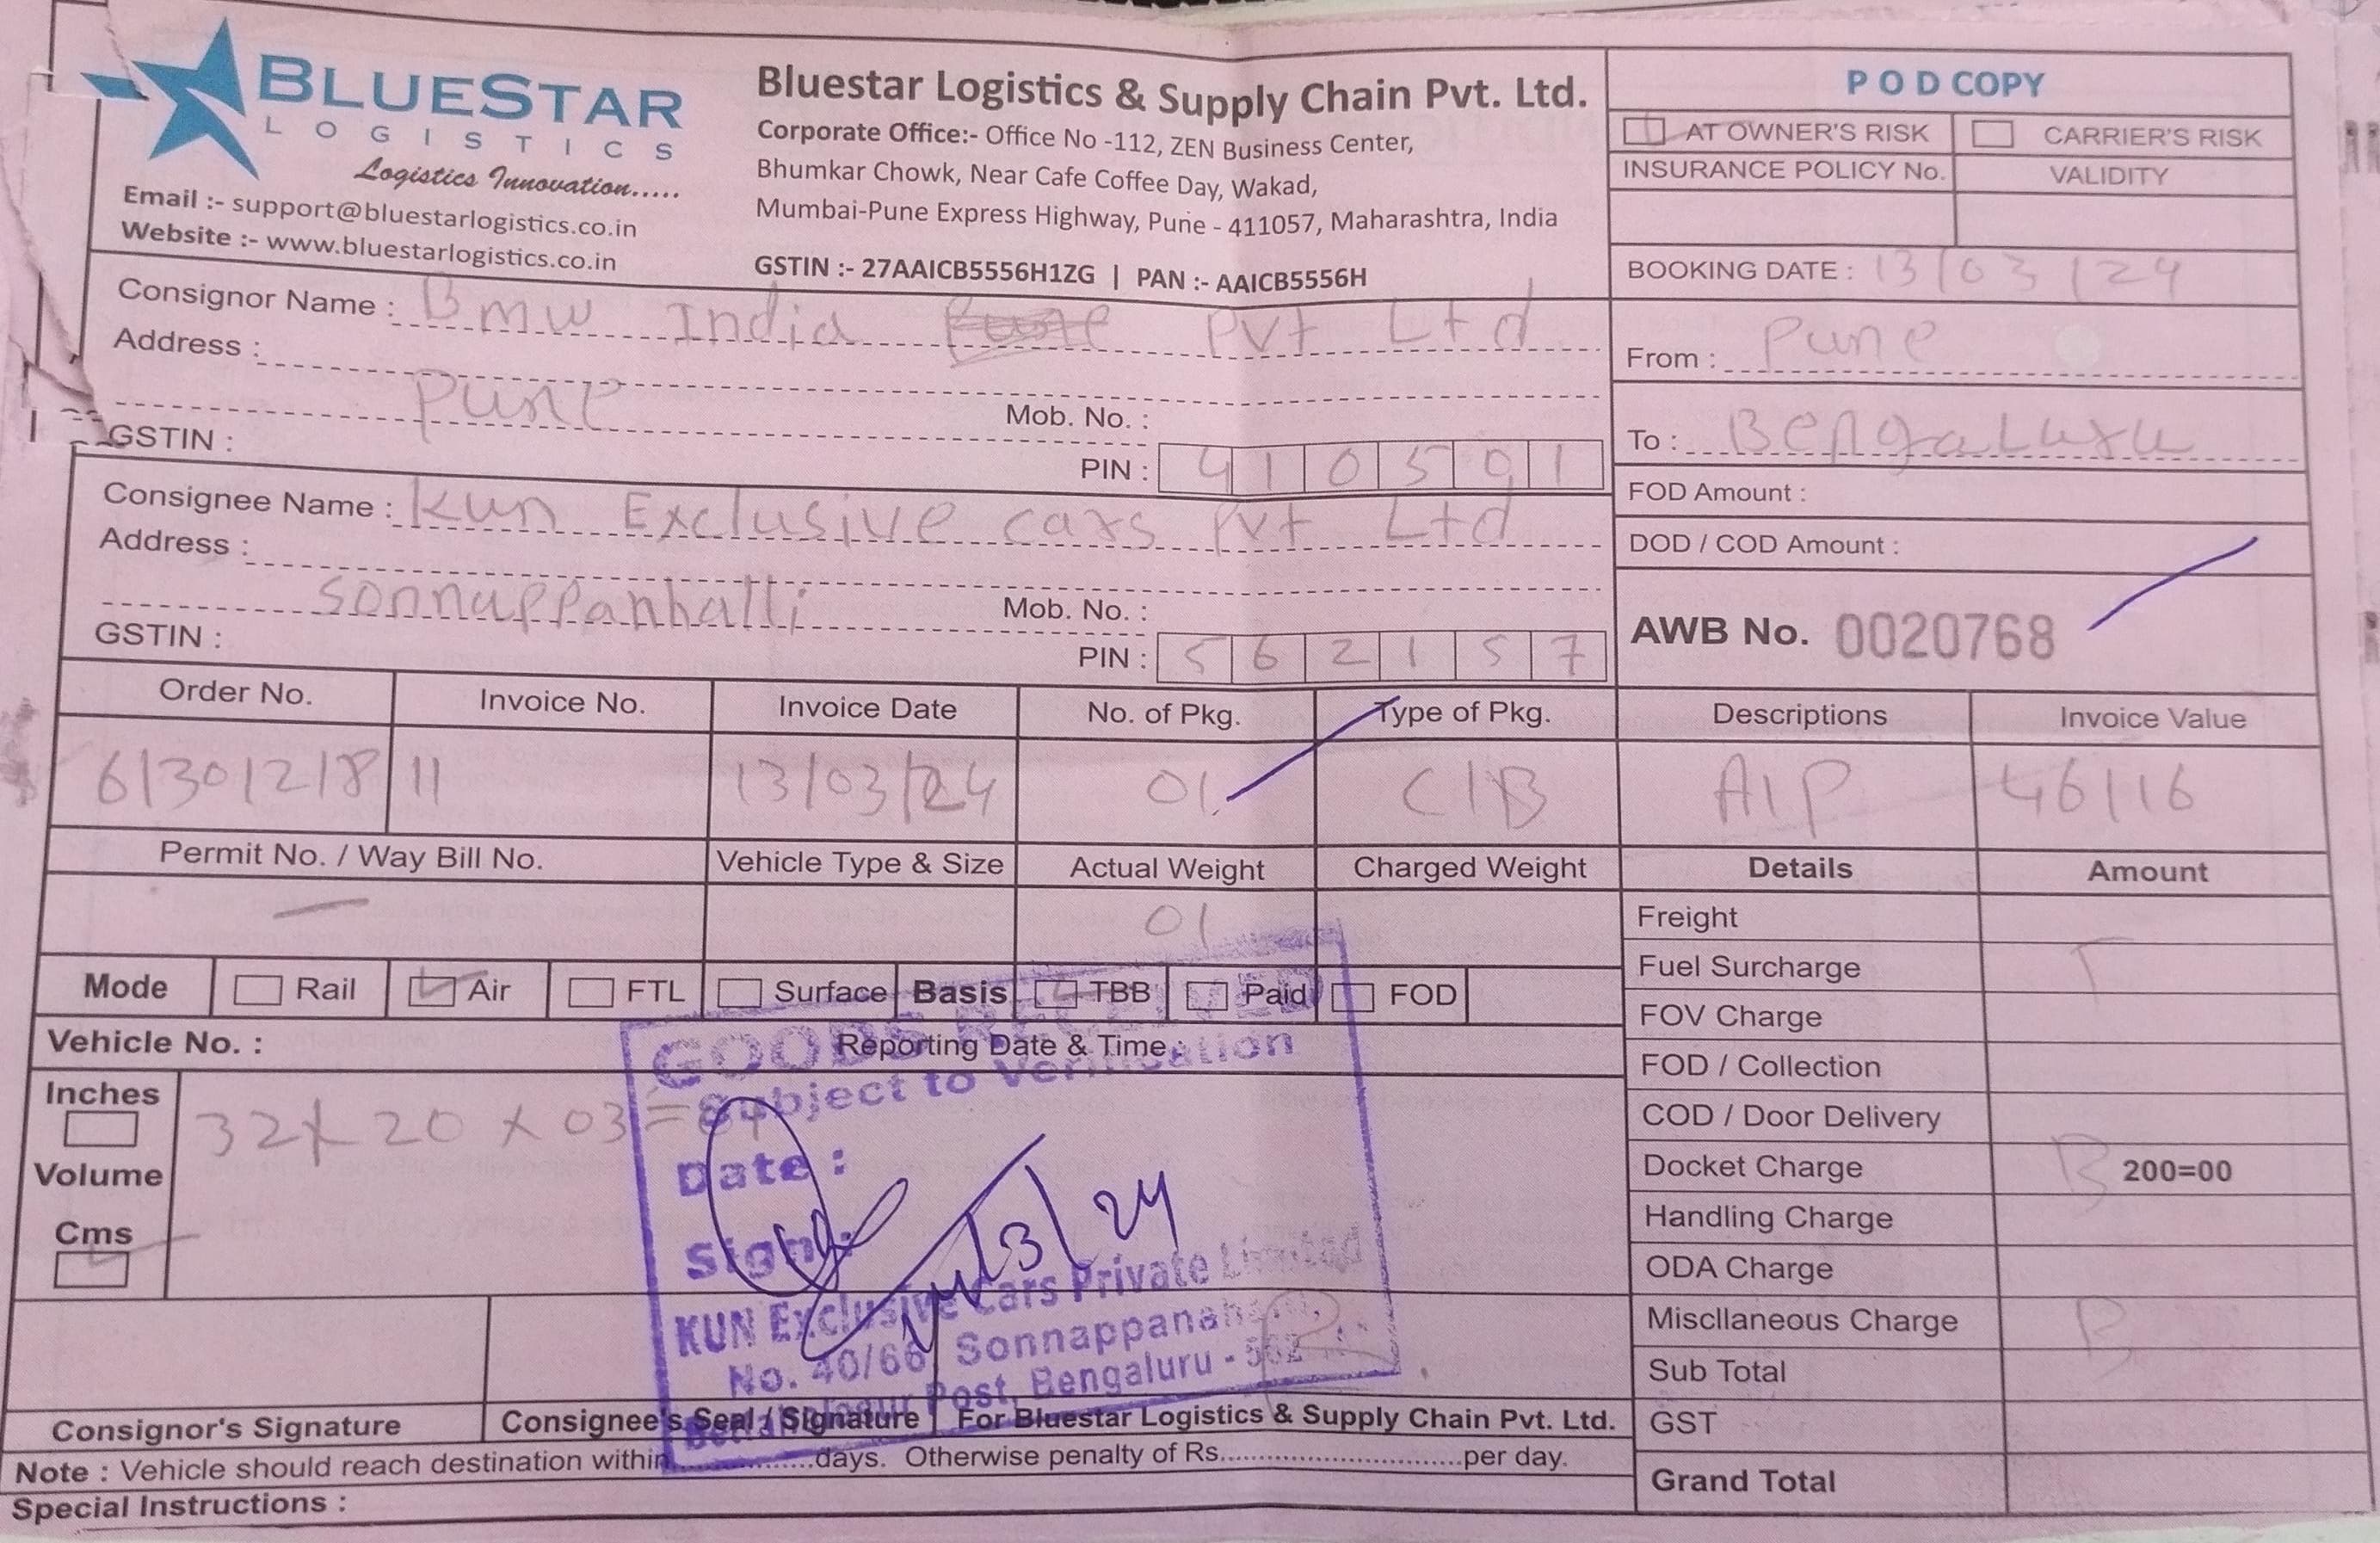 BLUESTAR
LOGISTICS
Logistics Innovation.....
Email :- support@bluestarlogistics.co.in
Website :- www.bluestarlogistics.co.in
Bluestar Logistics & Supply Chain Pvt. Ltd.
Corporate Office:- Office No -112, ZEN Business Center,
Bhumkar Chowk, Near Cafe Coffee Day, Wakad,
Mumbai-Pune Express Highway, Pune - 411057, Maharashtra, India
GSTIN :- 27AAICB5556H1ZG | PAN :- AAICB5556H
POD COPY
AT OWNER'S RISK CARRIER'S RISK
INSURANCE POLICY No. VALIDITY
BOOKING DATE : 13/03/24
Consignor Name : Bmw India Pvt Ltd
Address :
Pune
Mob. No. :
GSTIN :
PIN : 410501
From : Pune
To : Bengaluru
Consignee Name : Kun Exclusive cars Pvt Ltd
Address :
Sonnappanhalli
Mob. No. :
GSTIN :
PIN : 562157
FOD Amount :
DOD / COD Amount :
AWB No. 0020768
Order No. Invoice No. Invoice Date No. of Pkg. Type of Pkg. Descriptions Invoice Value
6130121811 13/03/24 01 C/B A/P 46116
Permit No. / Way Bill No. Vehicle Type & Size Actual Weight Charged Weight Details Amount
01
Freight
Mode Rail Air FTL Surface Basis TBB Paid FOD
Fuel Surcharge T
Vehicle No. : Reporting Date & Time :
FOV Charge
FOD / Collection
COD / Door Delivery
Docket Charge B 200=00
Handling Charge
ODA Charge
Miscllaneous Charge B
Sub Total
GST
Grand Total
Inches
Volume
Cms
32 x 20 x 03 =
GOODS RECEIVED
Subject to Verification
Date :
Sign :
/3/24
KUN Exclusive Cars Private Limited
No. 40/66, Sonnappanahalli,
Post, Bengaluru - 562
Consignor's Signature Consignee's Seal / Signature For Bluestar Logistics & Supply Chain Pvt. Ltd.
Note : Vehicle should reach destination within..............days. Otherwise penalty of Rs..............................per day.
Special Instructions :